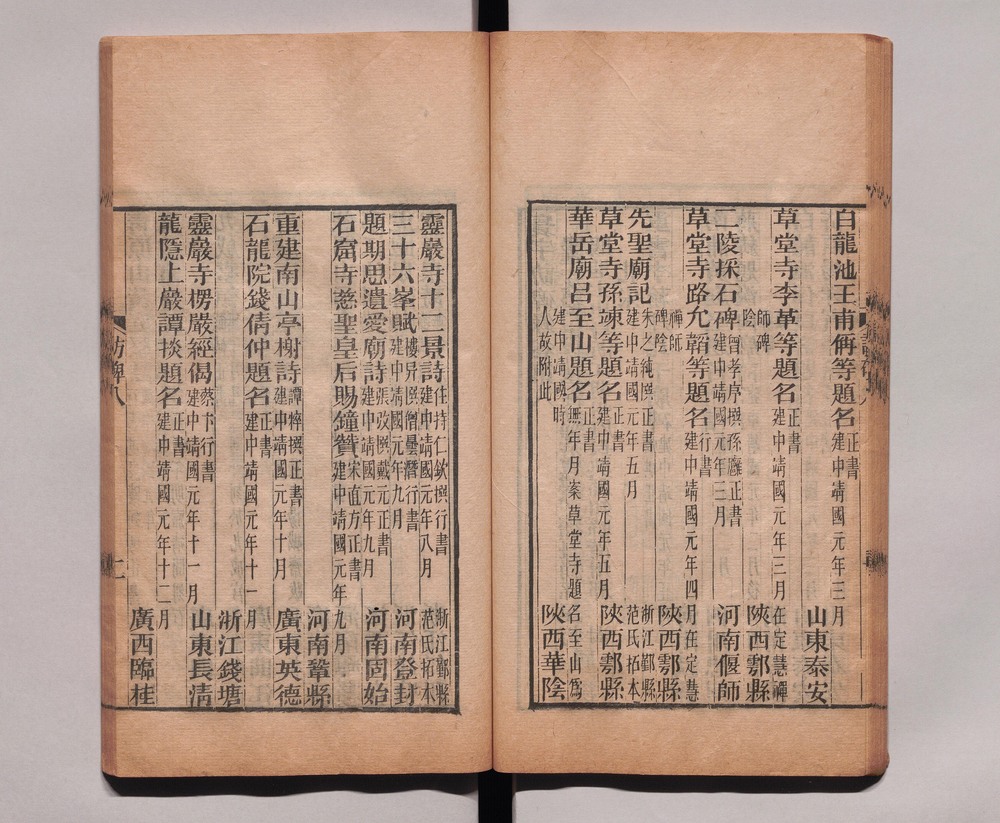 白龍池王甫侢等題名正書建中靖國元年三月
山東泰安
草堂寺李革等題名正書建中靖國元年三月在定慧禪
師碑陰
陝西鄠縣
二陵採石碑曾孝序撰孫廱正書建中靖國元年三月
河南偃師
草堂寺路允蹈等題名行書建中靖國元年四月在定慧
禪師碑陰
陝西鄠縣
先聖廟記朱之純撰正書建中靖國元年五月
浙江鄞縣范氏拓本
草堂寺孫竦等題名正書建中靖國元年五月
陝西鄠縣
華岳廟呂至山題名正書無年月案草堂寺題名至山為
建中靖國時人故附此
陝西華陰
靈巖寺十二景詩住持仁欽撰行書建中靖國元年八月
浙江鄞縣范氏拓本
三十六峯賦樓异撰僧曇潛行書建中靖國元年九月
河南登封
題期思遺愛廟詩張改撰戴元正書建中靖國元年九月
河南固始
石窟寺慈聖皇后賜鐘贊宋直方正書建中靖國元年九月
河南鞏縣
重建南山亭榭詩譚粹撰正書建中靖國元年十月
廣東英德
石龍院錢倩仲題名正書建中靖國元年十一月
浙江錢塘
靈巖寺楞嚴經偈蔡卞行書建中靖國元年十一月
山東長清
龍隱上巖譚掞題名正書建中靖國元年十二月
廣西臨桂
訪碑八
十一